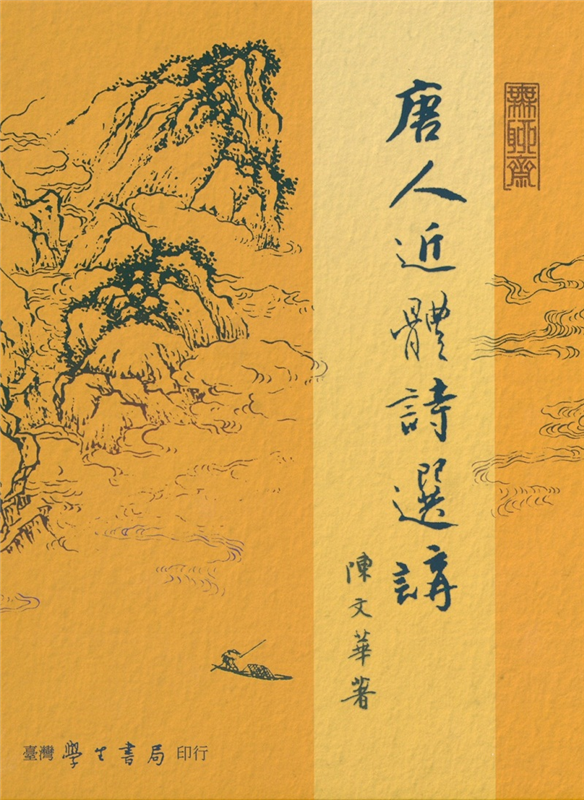 無聊齋
唐人近體詩選講
陳文華著
臺灣學生書局印行